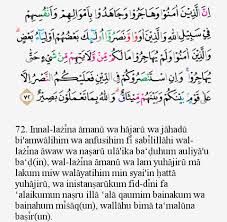 اِنَّ الَّذِيْنَ اٰمَنُوْا وَهَاجَرُوْا وَجَاهَدُوْا بِاَمْوَالِهِمْ وَاَنْفُسِهِمْ
فِيْ سَبِيْلِ اللّٰهِ وَالَّذِيْنَ اٰوَوْا وَّنَصَرُوْٓا اُولٰۤىِٕكَ بَعْضُهُمْ اَوْلِيَاۤءُ بَعْضٍ
وَالَّذِيْنَ اٰمَنُوْا وَلَمْ يُهَاجِرُوْا مَا لَكُمْ مِّنْ وَّلَايَتِهِمْ مِّنْ شَيْءٍ حَتّٰى
يُهَاجِرُوْا وَاِنِ اسْتَنْصَرُوْكُمْ فِى الدِّيْنِ فَعَلَيْكُمُ النَّصْرُ اِلَّا
عَلٰى قَوْمٍۢ بَيْنَكُمْ وَبَيْنَهُمْ مِّيْثَاقٌ وَاللّٰهُ بِمَا تَعْمَلُوْنَ بَصِيْرٌ ٧٢
72. Innal-lażīna āmanū wa hājarū wa jāhadū
bi'amwālihim wa anfusihim fī sabīlillāhi wal-
lażīna āwaw wa naṣarū ulā'ika ba'ḍuhum auliyā'u
ba'ḍ(in), wal-lażīna āmanū wa lam yuhājirū mā
lakum miw walāyatihim min syai'in ḥattā
yuhājirū, wa inistanṣarūkum fid-dīni fa
'alaikumun naṣru illā 'alā qaumim bainakum wa
bainahum mīṡāq(un), wallāhu bimā ta'malūna
baṣīr(un).